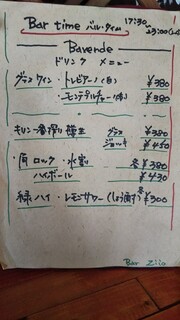 Bar time バル・タイム 17:30
Bavende
ドリンク メニュー
グラスワイン・トレビアーノ(白) ¥380
・モンテプルチャーノ(赤) ¥380
キリン一番搾り 樽生 グラス ¥380
ジョッキ ¥450
角 ロック・水割 各¥380
ハイボール ¥430
緑ハイ・レモンサワー 各¥300
Bar